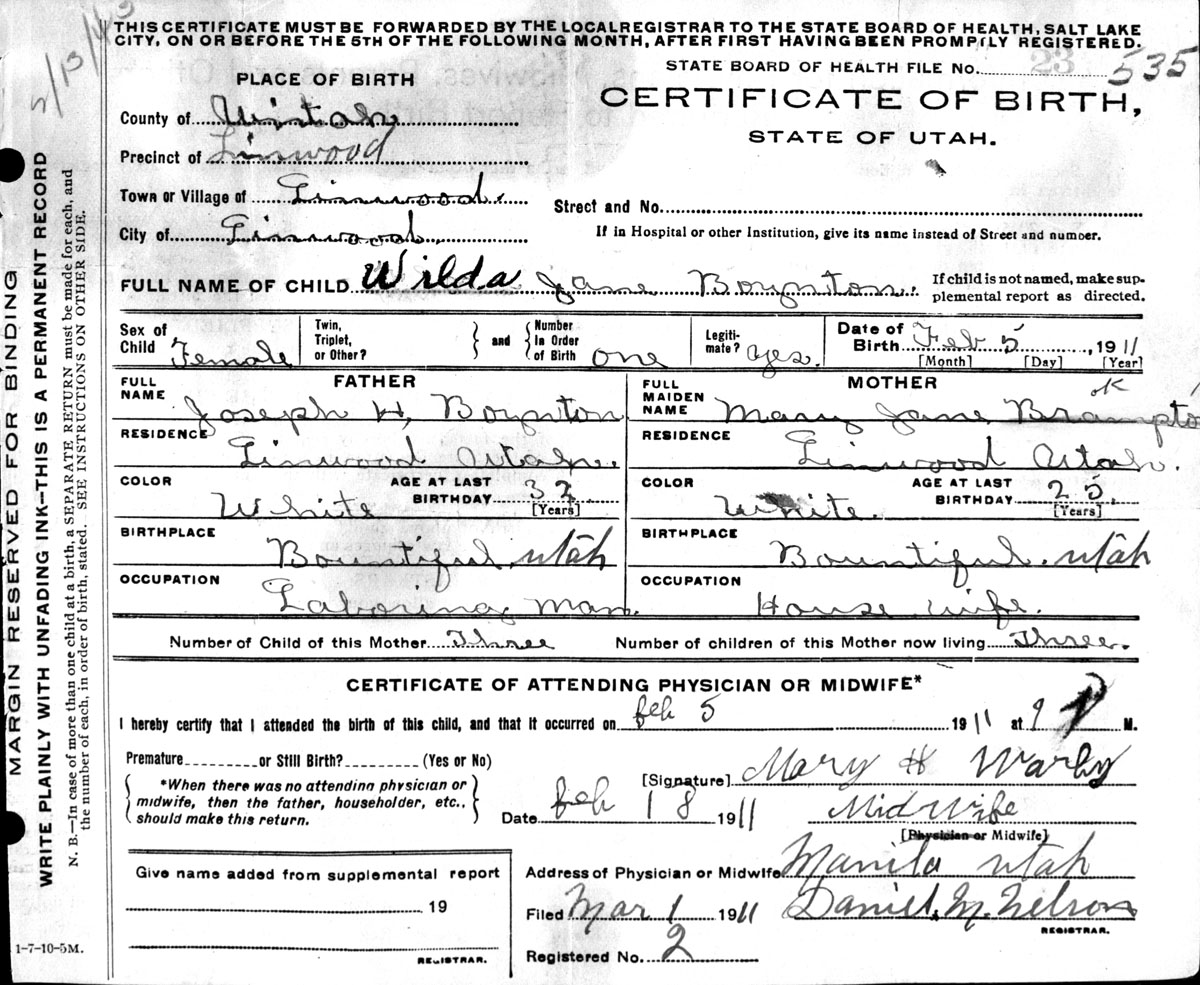 2/13/43
THIS CERTIFICATE MUST BE FORWARDED BY THE LOCAL REGISTRAR TO THE STATE BOARD OF HEALTH, SALT LAKE
CITY, ON OR BEFORE THE 5TH OF THE FOLLOWING MONTH, AFTER FIRST HAVING BEEN PROMPTLY REGISTERED.
STATE BOARD OF HEALTH FILE No. 23 535
PLACE OF BIRTH
CERTIFICATE OF BIRTH,
STATE OF UTAH.
County of Uintah
Precinct of Linwood
Town or Village of Linwood.
Street and No.
City of Linwood.
If in Hospital or other Institution, give its name instead of Street and number.
FULL NAME OF CHILD Wilda Jane Boynton. If child is not named, make sup-
plemental report as directed.
Sex of Child Female
Twin, Triplet, or Other? and Number In Order of Birth one
Legiti-mate? yes.
Date of Birth Feb 5, 1911
[Month] [Day] [Year]
FATHER
FULL NAME Joseph H. Boynton
RESIDENCE Linwood Utah.
COLOR White AGE AT LAST BIRTHDAY 32 [Years]
BIRTHPLACE Bountiful. Utah
OCCUPATION Laboring man.
MOTHER
ok
FULL MAIDEN NAME Mary Jane Brampto
RESIDENCE Linwood Utah.
COLOR White. AGE AT LAST BIRTHDAY 25. [Years]
BIRTHPLACE Bountiful. Utah
OCCUPATION House wife.
Number of Child of this Mother Three Number of children of this Mother now living Three.
CERTIFICATE OF ATTENDING PHYSICIAN OR MIDWIFE*
I hereby certify that I attended the birth of this child, and that it occurred on feb 5 1911 at 9 P M.
Premature or Still Birth? (Yes or No)
*When there was no attending physician or
midwife, then the father, householder, etc.,
should make this return.
[Signature] Mary H Warby
Date feb 18 1911 MidWife
[Physician or Midwife]
Give name added from supplemental report
19
REGISTRAR.
Address of Physician or Midwife Manila Utah
Filed Mar 1 1911 Daniel M. Nelson
REGISTRAR.
Registered No. 2
1-7-10-5M.
MARGIN RESERVED FOR BINDING
WRITE PLAINLY WITH UNFADING INK—THIS IS A PERMANENT RECORD
N. B.—In case of more than one child at a birth a SEPARATE RETURN must be made for each, and
the number of each, in order of birth, stated. SEE INSTRUCTIONS ON OTHER SIDE.